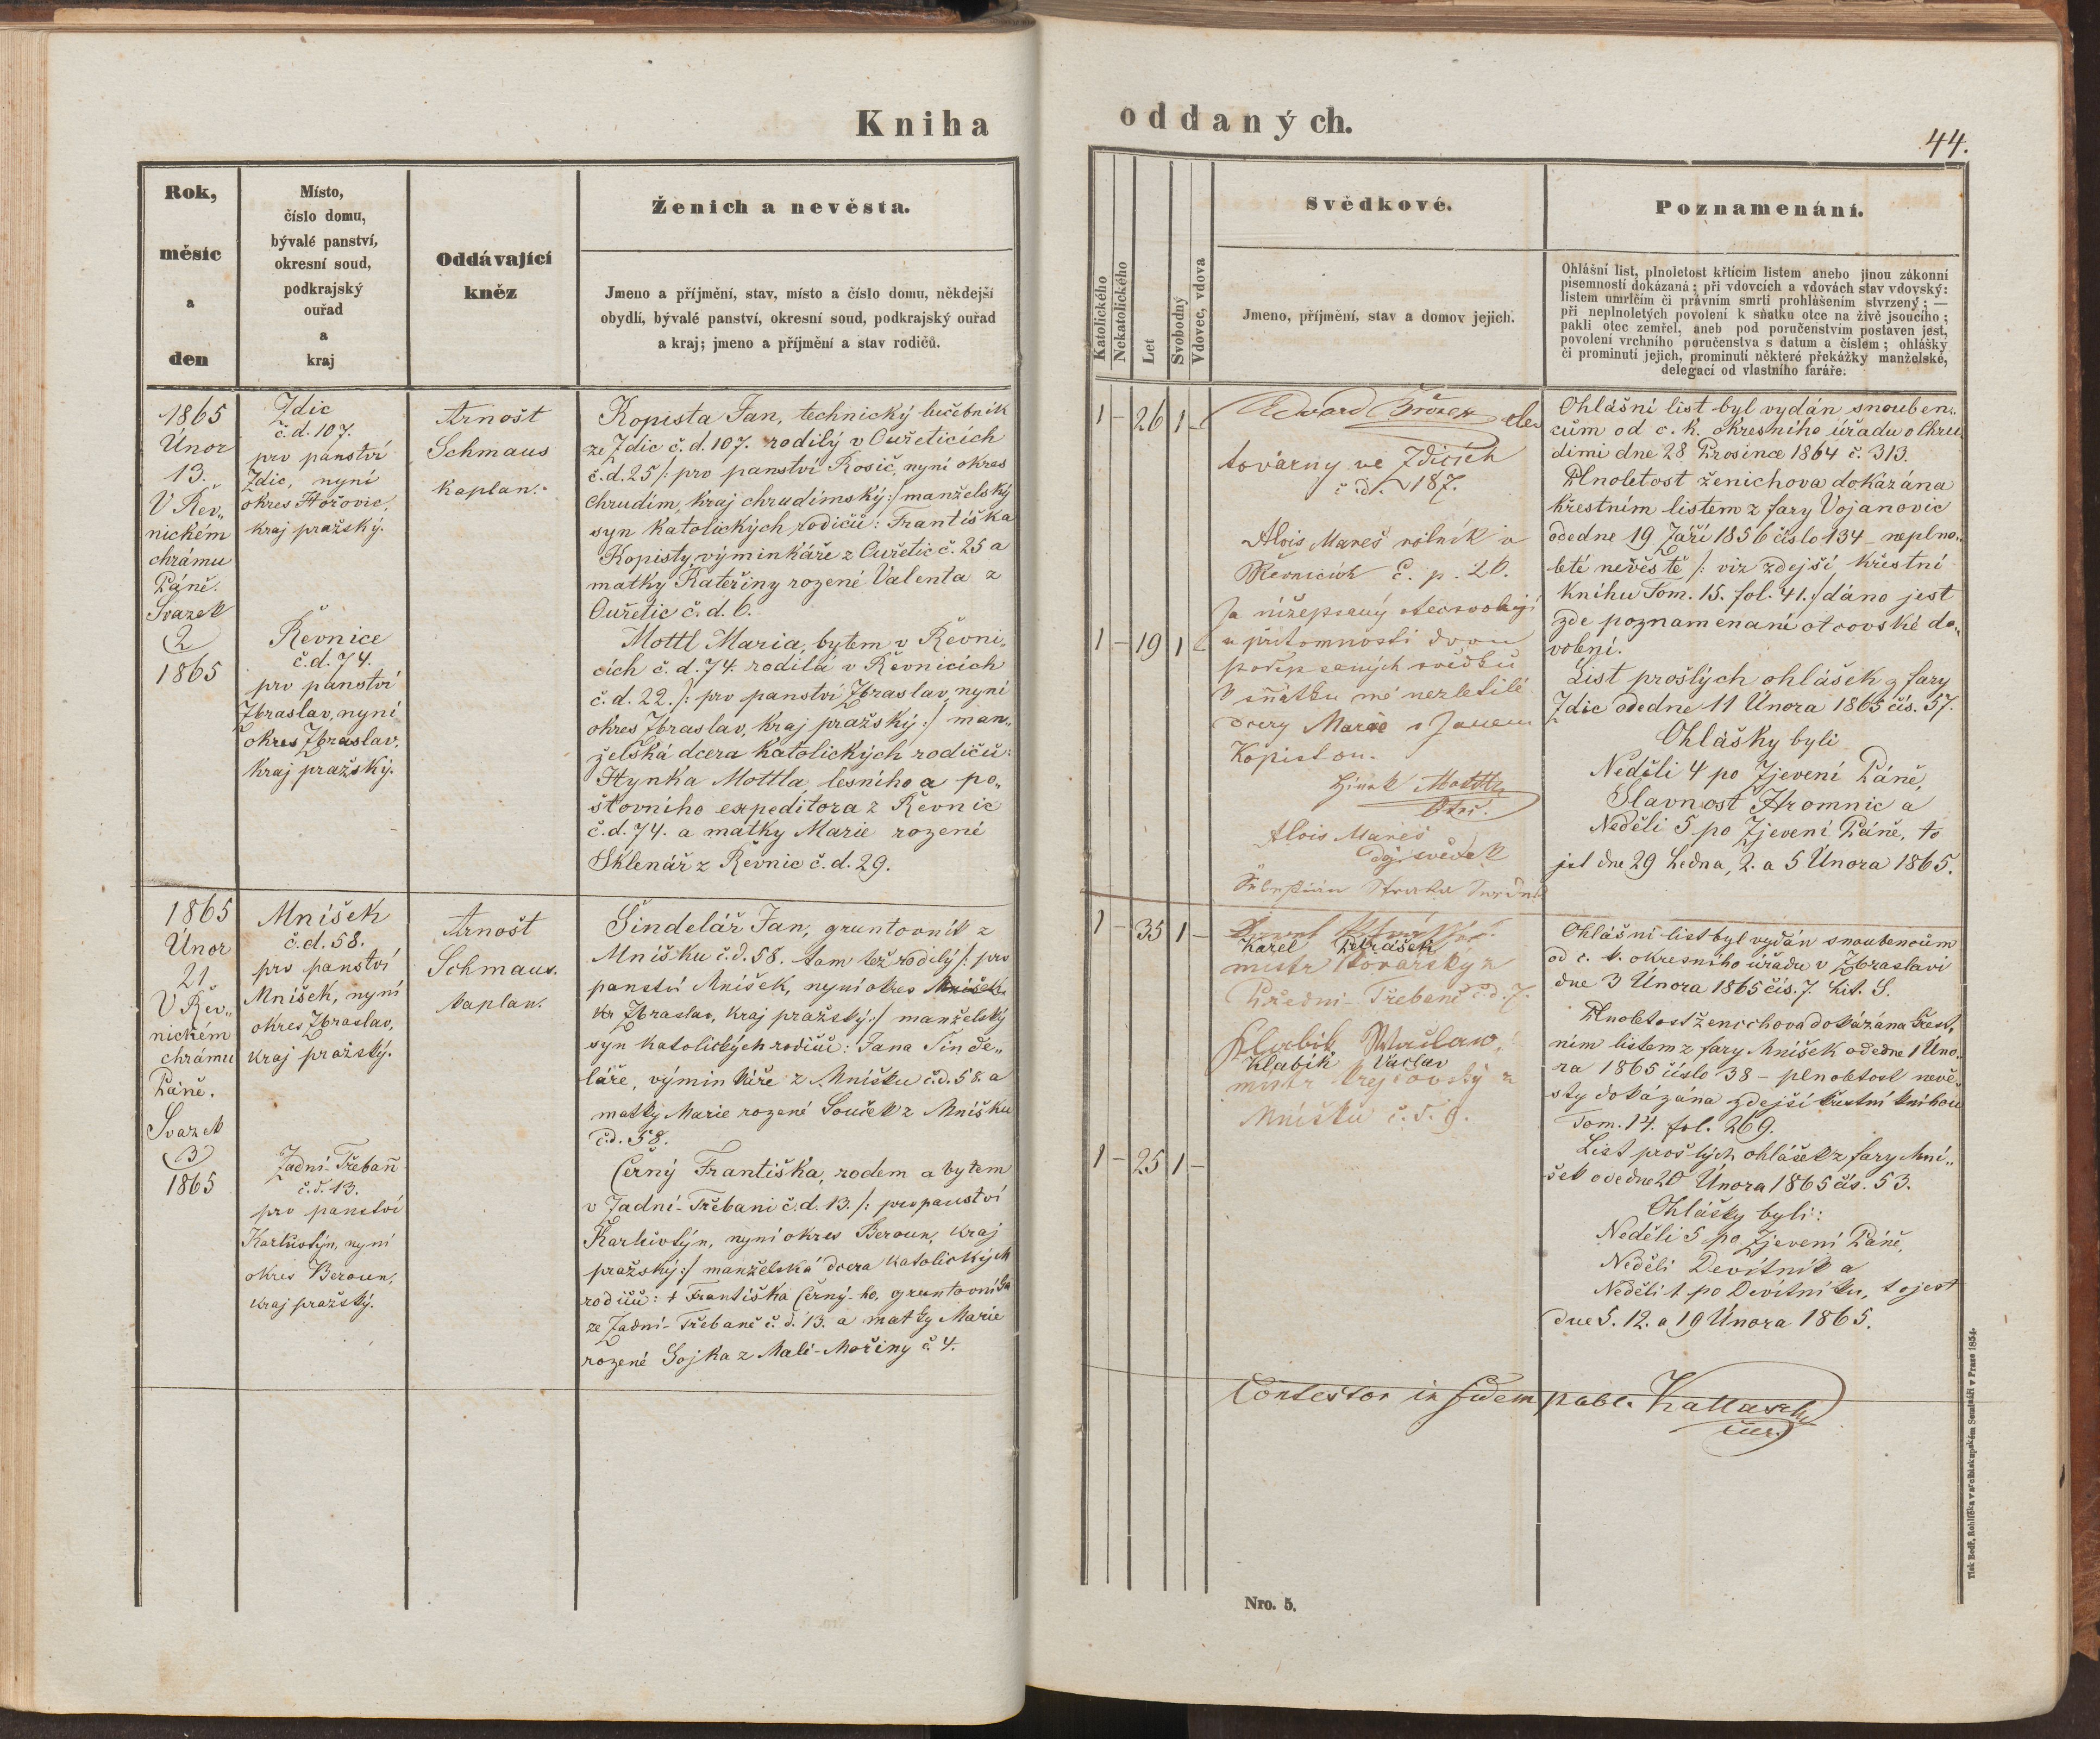 Kniha
oddaných.
44.
Rok,
měsíc
a
den
Místo,
číslo domu,
bývalé panství,
okresní soud,
podkrajský
ouřad
a
kraj
Oddávající
kněz
Ženich a nevěsta.
Jmeno a příjmění, stav, místo a číslo domu, někdejší
obydlí, bývalé panství, okresní soud, podkrajský ouřad
a kraj; jmeno a příjmění a stav rodičů.
Katolického
Nekatolického
Let
Svobodný
Vdovec, vdova
Svědkové.
Jmeno, příjmění, stav a domov jejich.
Poznamenání.
Ohlášní list, plnoletost křticím listem anebo jinou zákonní
písemností dokázaná; při vdovcích a vdovách stav vdovský:
listem umrlčím či právním smrti prohlášením stvrzený; —
při neplnoletých povolení k sňatku otce na živě jsoucího;
pakli otec zemřel, aneb pod poručenstvím postaven jest,
povolení vrchního poručenstva s datum a číslem; ohlášky
či prominutí jejich, prominutí některé překážky manželské,
delegací od vlastního faráře.
1865
Únor
13.
V Řev„
nickém
chrámu
Páně.
Svazek
2
1865
Zdic
č.d. 107.
prv panství
Zdic, nyní
okres Hořovic,
kraj pražský.
Řevnice
č.d. 74.
prv panství
Zbraslav, nyní
okres Zbraslav,
kraj pražský.
Arnošt
Schmaus
kaplan.
Kopista Jan, technický lučebník
ze Zdic č.d. 107. rodilý v Ouřeticích
č.d. 25 /: prv panství Rosič, nyní okres
Chrudim, kraj chrudimský :/ manželský
syn katolických rodičů: Františka
Kopisty, výminkáře z Ouřetic č. 25 a
matky Kateřiny rozené Valenta z
Ouřetic č.d. 6.
Mottl Maria, bytem v Řevni„
cích č.d. 74. rodilá v Řevnicích
č.d. 22. /: prv panství Zbraslav, nyní
okres Zbraslav, kraj pražský :/ man„
želská dcera katolických rodičů:
Hynka Mottla, lesního a po„
štovního expeditora z Řevnic
č.d. 74. a matky Marie rozené
Sklenář z Řevnic č.d. 29.
1 – 26 1 –
1 – 19 1
Edvard Brožek
továrny ve Zdicích
č.d. 187.
Alois Mareš rolník v
Řevnicích č. p. 26.
Ja nížepsaný otec svoluji
u přítomnosti dvou
podepsaných svědků
k sňatku mé nezletilé
dcery Marie s Janem
Kopistou.
Hinek Mottl
Otec.
Alois Mareš
svědek
Ohlášní list byl vydán snouben„
cům od c. k. okresního úřadu v Chru„
dimi dne 28 Prosince 1864 č. 313.
Plnoletost ženichova dokázána
křestním listem z fary Vojanovic
odedne 19 Září 1856 číslo 134 – neplno„
leté nevěstě /: viz zdejší křestní
knihu Tom. 15. fol. 41. :/ dáno jest
zde poznamenaní otcovské do„
volení.
List prošlých ohlášek z fary
Zdic odedne 11 Února 1865 čís. 57.
Ohlášky byli
Neděli 4 po Zjevení Páně,
Slavnost Hromnic a
Neděli 5 po Zjevení Páně, to
jest dne 29 Ledna, 2. a 5 Února 1865.
1865
Únor
21
V Řev„
nickém
chrámu
Páně.
Svazek
3
1865
Mníšek
č.d. 58.
prv panství
Mníšek, nyní
okres Zbraslav,
kraj pražský.
Zadní-Třebaň
č.d. 13.
prv panství
Karlštýn, nyní
okres Beroun,
kraj pražský.
Arnošt
Schmaus.
kaplan.
Šindelář Jan, gruntovník z
Mníšku č.d. 58. tam též rodilý /: prv
panství Mníšek, nyní okres Mníšek
kr Zbraslav, kraj pražský :/ manželský
syn katolických rodičů: Jana Šinde„
láře, výminkáře z Mníšku č.d. 58. a
matky Marie rozené Souček z Mníšku
č.d. 58.
Černý Františka, rodem a bytem
v Zadní-Třebani č.d. 13. /: prv panství
Karlštýn, nyní okres Beroun, kraj
pražský :/ manželská dcera katolických
rodičů: † Františka Černý-ho, gruntovníka
ze Zadní-Třebaně č.d. 13. a matky Marie
rozené Sojka z Malé-Mořiny č. 4.
1 – 35 1 –
1 – 25 1 –
Karel
mistr kovářský z
Přední-Třebaně č.d. 7.
Hlabik Waclaw
Klabík Václav
mistr krejčovský z
Mníšku č.d. 9.
Ohlášní list byl vydán snoubencům
od c. k. okresního úřadu v Zbraslavi
dne 3 Února 1865 čís. 7. Lit. S.
Plnoletost ženichova dokázána křest„
ním listem z fary Mníšek odedne 1 Úno„
ra 1865 číslo 38 – plnoletost nevě„
sty dokázána zdejší křestní knihou
Tom. 14. fol. 269.
List prošlých ohlášek z fary Mní„
šek odedne 20 Února 1865 čís. 53.
Ohlášky byli:
Neděli 5 po Zjevení Páně,
Neděli Devítník a
Neděli 1 po Devítníku, to jest
dne 5. 12. a 19 Února 1865.
Contestor in fidem publ.
Nro. 5.
Tisk Bedř. Rohlíčka v arcibiskupském Semináři v Praze 1854.